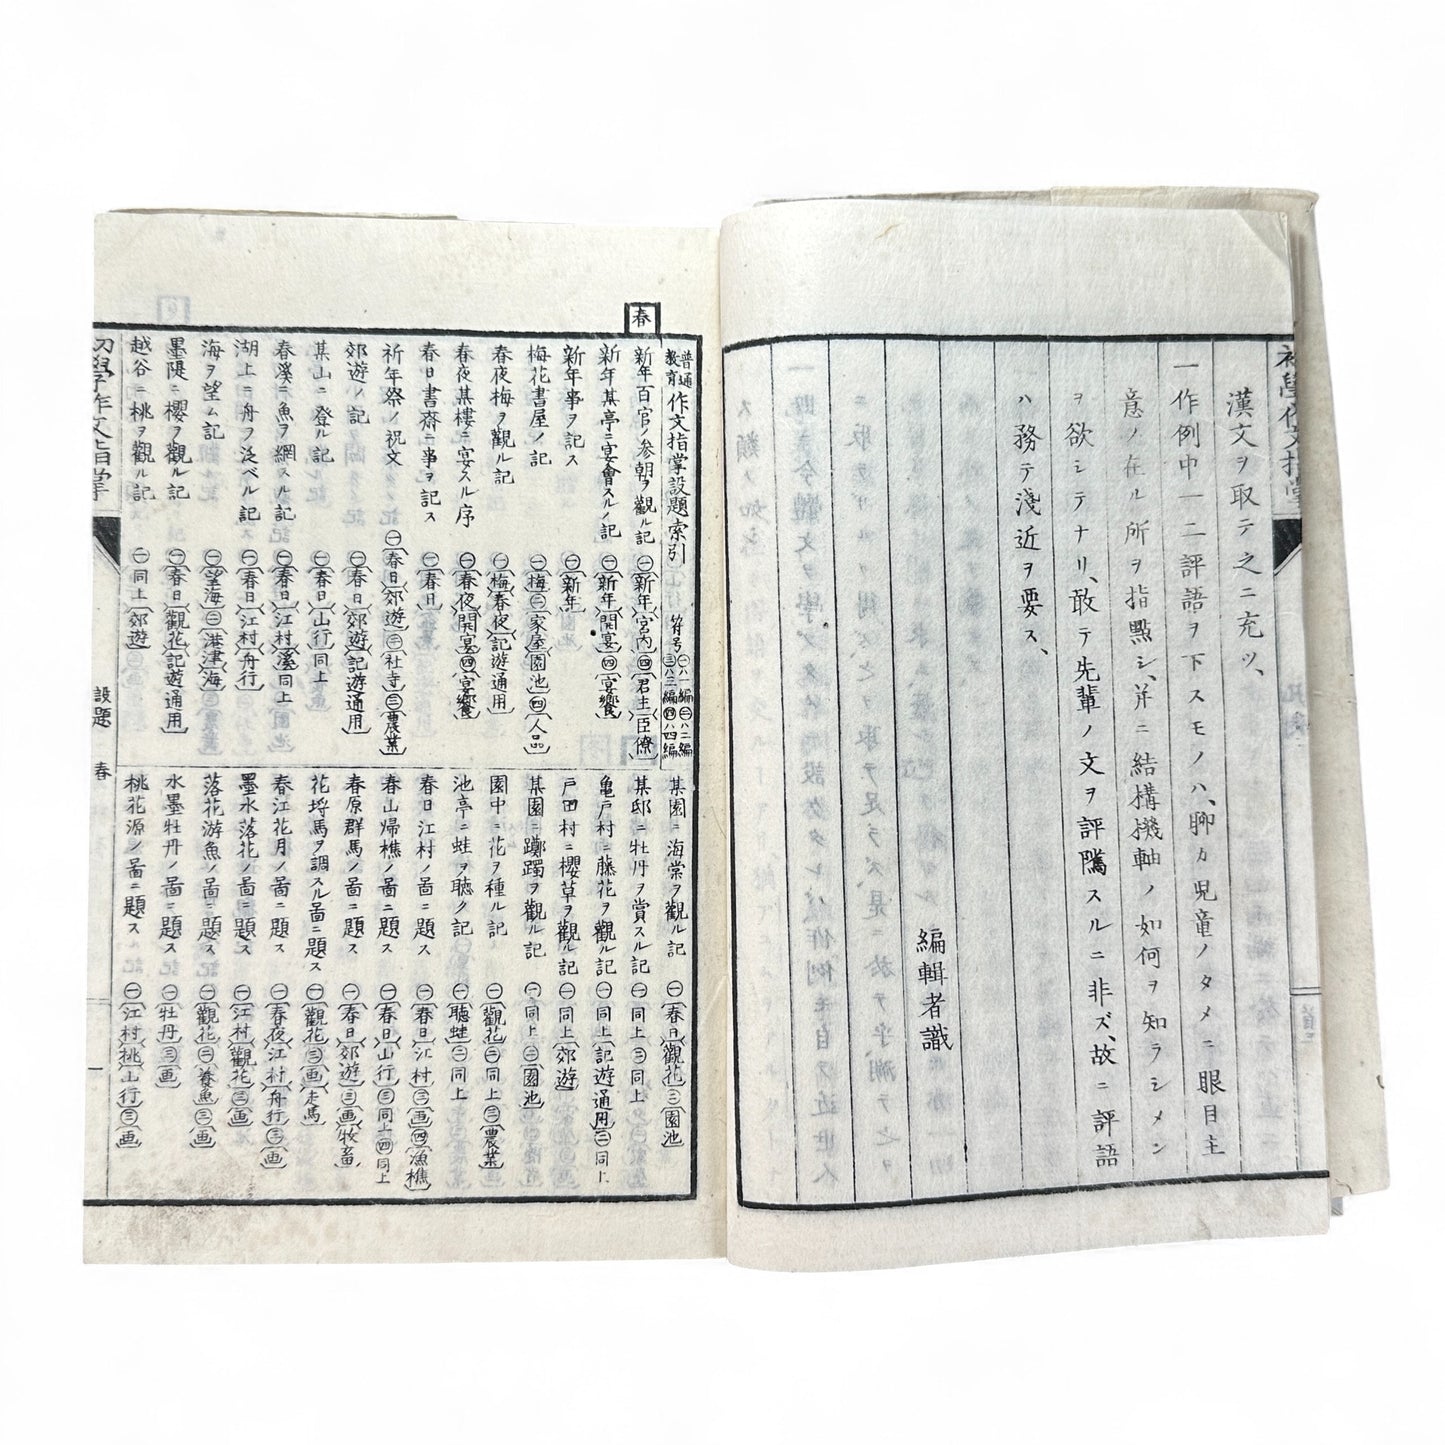 漢文ヲ取テ之ニ充ツ、
一作例中一二評語ヲ下スモノハ、聊カ児童ノタメニ眼目主
意ノ在ル所ヲ指點シ、并ニ結構機軸ノ如何ヲ知ラシメン
ヲ欲シテナリ、敢テ先輩ノ文ヲ評隲スルニ非ズ、故ニ評語
ハ務テ淺近ヲ要ス、
編輯者識
春
普通教育作文指掌設題索引 符号㊀ハ一編㊁ハ二編㊂ハ三編㊃ハ四編
新年百官ノ参朝ヲ觀ル記 ㊀(新年)(宮内)㊃(君主)(臣僚)
新年某亭ニ宴會スルノ記 ㊀(新年)(開宴)㊃(宴饗)
新年事ヲ記ス ㊀(新年)
梅花書屋ノ記 ㊀(梅)㊁(家屋)(園池)㊃(人品)
春夜梅ヲ觀ル記 ㊀(梅)(春夜)(記遊通用)
春夜某樓ニ宴スル序 ㊀(春夜)(開宴)㊃(宴饗)
春日書齋ニ事ヲ記ス ㊀(春日)
祈年祭ノ祝文 ㊀(春日)(郊遊)㊁(社寺)㊂(農業)
郊遊ノ記 ㊀(春日)(郊遊)(記遊通用)
某山ニ登ル記 ㊀(春日)(山行)同上
春溪ニ魚ヲ網スル記 ㊀(春日)(江村)(溪)同上
湖上ニ舟ヲ泛ベル記 ㊀(春日)(江村)(舟行)
海ヲ望ム記 ㊀(望海)㊁(港津)(海)
墨隄ニ櫻ヲ觀ル記 ㊀(春日)(觀花)(記遊通用)
越谷ニ桃ヲ觀ル記 ㊀同上(郊遊)
某園ニ海棠ヲ觀ル記 ㊀(春日)(觀花)㊂(園池)
某邸ニ牡丹ヲ賞スル記 ㊀同上㊂同上
亀戸村ニ藤花ヲ觀ル記 ㊀同上(記遊通用)㊁同上
戸田村ニ櫻草ヲ觀ル記 ㊀同上(郊遊)
某園ニ躑躅ヲ觀ル記 ㊀同上㊁(園池)
園中ニ花ヲ種ル記 ㊀(觀花)㊁同上㊂(農業)
池亭ニ蛙ヲ聽ク記 ㊀(聽蛙)㊁同上
春日江村ノ啚ニ題ス ㊀(春日)(江村)㊂(画)㊃(漁樵)
春山帰樵ノ啚ニ題ス ㊀(春日)(山行)㊂同上㊃同上
春原群馬ノ啚ニ題ス ㊀(春日)(郊遊)㊂(画)(牧畜)
花埒馬ヲ調スル啚ニ題ス ㊀(觀花)㊂(画)(走馬)
春江花月ノ啚ニ題ス ㊀(春夜)(江村)(舟行)㊂(画)
墨水落花ノ啚ニ題ス ㊀(江村)(觀花)㊂(画)
落花游魚ノ啚ニ題ス ㊀(觀花)㊁(養魚)㊂(画)
水墨牡丹ノ啚ニ題ス ㊀(牡丹)㊂(画)
桃花源ノ啚ニ題ス ㊀(江村)(桃)(山行)㊂(画)
初學作文指掌 設題 春 一